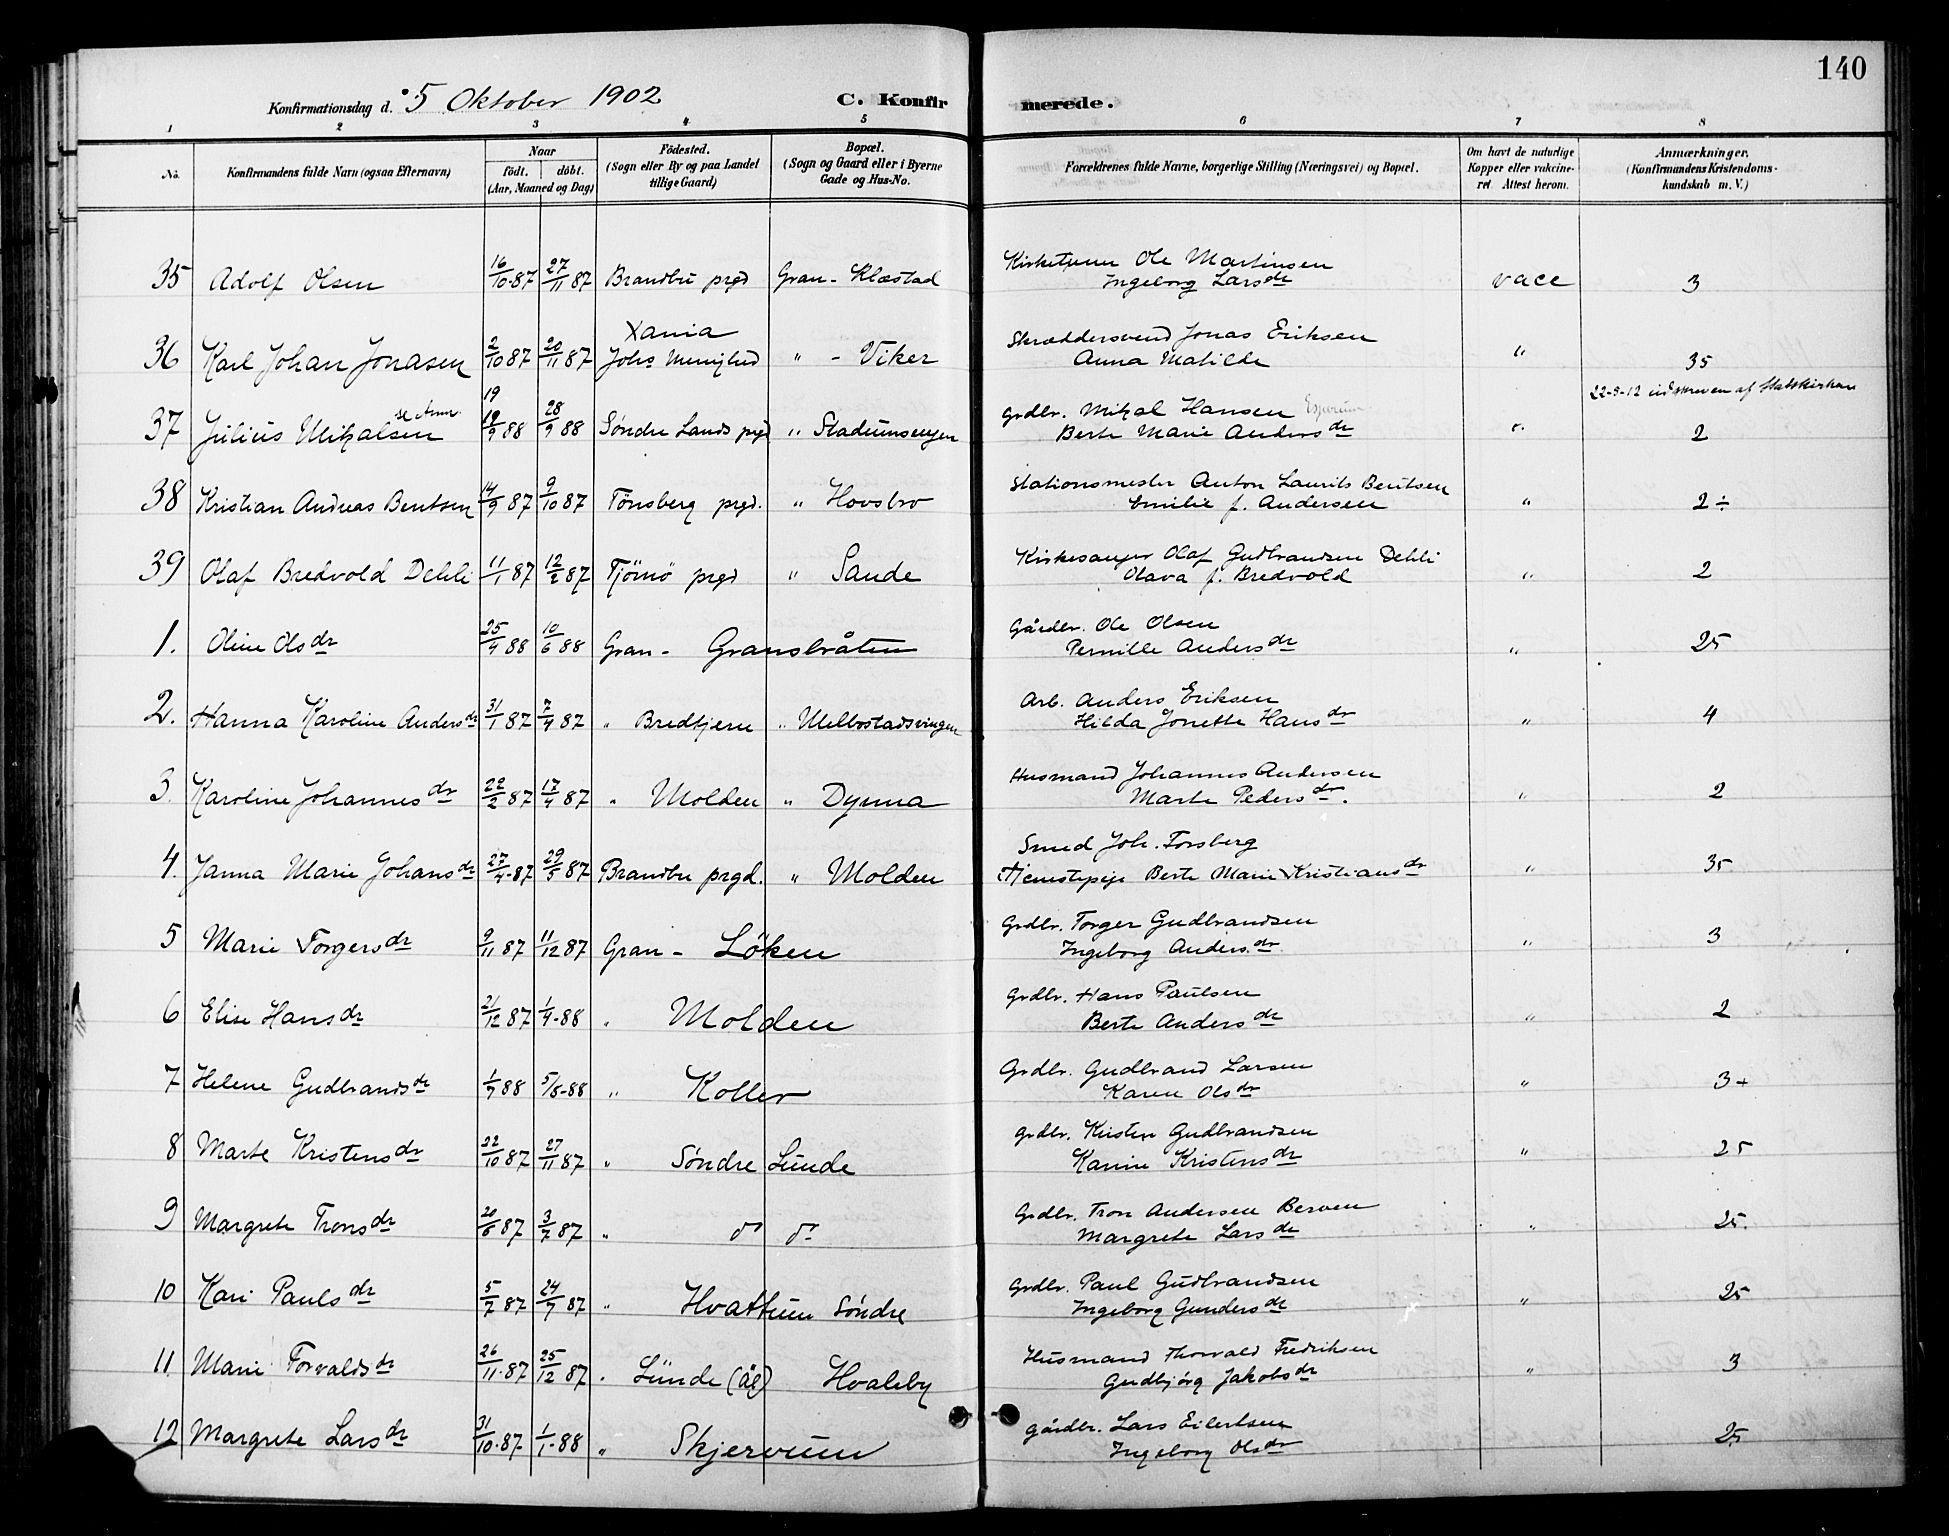 140
Konfirmationsdag d. 5 Oktober 1902 C. Konfirmerede.
1 2 3 4 5 6 7 8
No. Konfirmandens fulde Navn (ogsaa Efternavn) Naar födt. döbt. (Aar, Maaned og Dag) Födested. (Sogn eller By og paa Landet tillige Gaard) Bopæl. (Sogn og Gaard eller i Byerne Gade og Hus-No. Forældrenes fulde Navne, borgerlige Stilling (Næringsvei) og Bopæl. Om havt de naturlige Kopper eller vakcineret. Attest herom. Anmærkninger. (Konfirmandens Kristendomskundskab m. V.)
35 Adolf Olsen 16/10-87 27/11 87 Brandbu prgd Gran - Klæstad Kirketjener Ole Martinsen
Ingeborg Larsdr vacc 3
36 Karl Johan Jonasen 2/10 87 20/11 87 Xania Johs Menighed " - Viker Skræddersvend Jonas Eriksen
Anna Matilde " 35
22-3-12 udskreven af Statskirken
37 Julius Mikalsen se Anm. 19 19/9 88 28/9 88 Søndre Lands prgd " Stadumsengen Grdbr. Mikal Hansen
Berte Marie Andersdr " 2
38 Kristian Andreas Bentsen 14/9 87 9/10 87 Tönsberg prgd. " Hovsbro Stationsmester Anton Laurits Bentsen
Emilie f. Andersen " 2 ÷
39 Olaf Bredvold Dehli 11/1 87 12/2 87 Tjömö prgd " Sande Kirkesanger Olaf Gudbrandsen Dehli
Olava f. Bredvold " 2
1. Oline Olsdr 25/4 88 10/6 88 Gran - Gransbråten Gårdbr. Ole Olsen
Pernille Andersdr " 25
2. Hanna Karoline Andersdr 31/1 87 7/4 87 " Bredtjern " Ulbostadsvingen Arb. Anders Eriksen
Hilda Jonette Hansdr " 4
3. Karoline Johannesdr 22/2 87 17/4 87 " Molden " Dynna Husmand Johannes Andersen
Marte Pedersdr. " 2
4. Janna Marie Johansdr 27/4-87 29/5 87 Brandbu prgd. " Molden Smed Joh. Forsberg
Tjenestepige Berte Marie Kristiansdr " 35
5 Marie Torgersdr 9/11 87 11/12 87 Gran - Löken Grdbr. Torger Gudbrandsen
Ingeborg Andersdr " 3
6 Elise Hansdr 21/12 87 1/4-88 " Molden Grdbr. Hans Paulsen
Berte Andersdr " 2
7 Helene Gudbrandsdr 1/7 88 5/8-88 " Koller Grdbr. Gudbrand Larsen
Karen Olsdr " 3+
8 Marte Kristensdr 22/10 87 27/11 87 " Søndre Lunde Grdbr. Kristen Gudbrandsen
Karine Kristensdr " 25
9 Margrete Tronsdr 20/6 87 3/7 87 " do do Grdbr. Tron Andersen Berven
Margrete Larsdr " 25.
10 Kari Paulsdr 5/7 87 24/7 87 " Hvattum Söndre Grdbr. Paul Gudbrandsen
Ingeborg Gundersdr " 25
11 Marie Torvaldsdr 26/11-87 25/12 87 " Lunde (Ål) Hvaleby Husmand Thorvald Fredriksen
Gudbjörg Jakobsdr " 3
12 Margrete Larsdr 31/10-87 1/1-88 " Skjervum Gårdbr. Lars Eilertsen
Ingeborg Olsdr 25